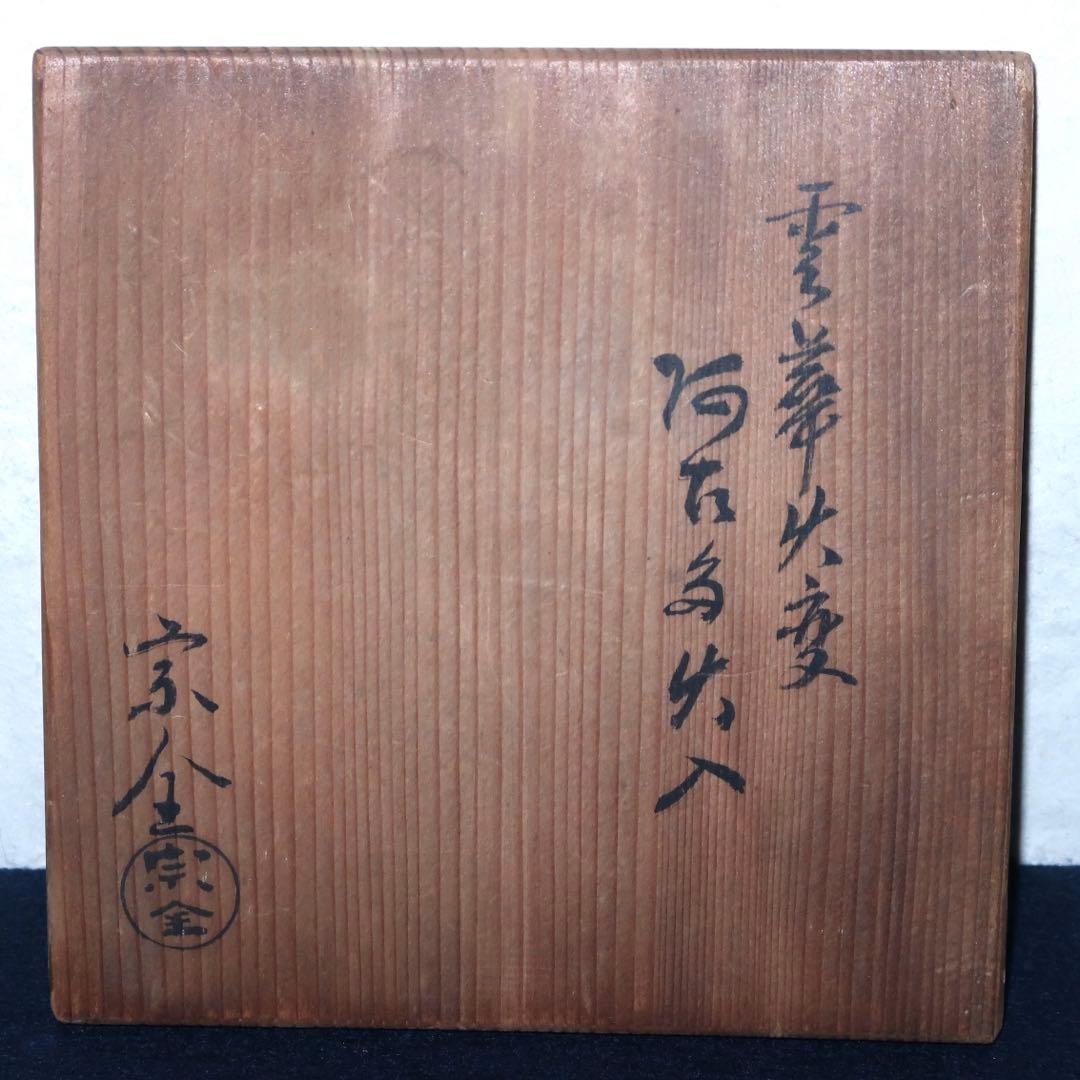 雲華火変
阿古多火入
宗全
宗全